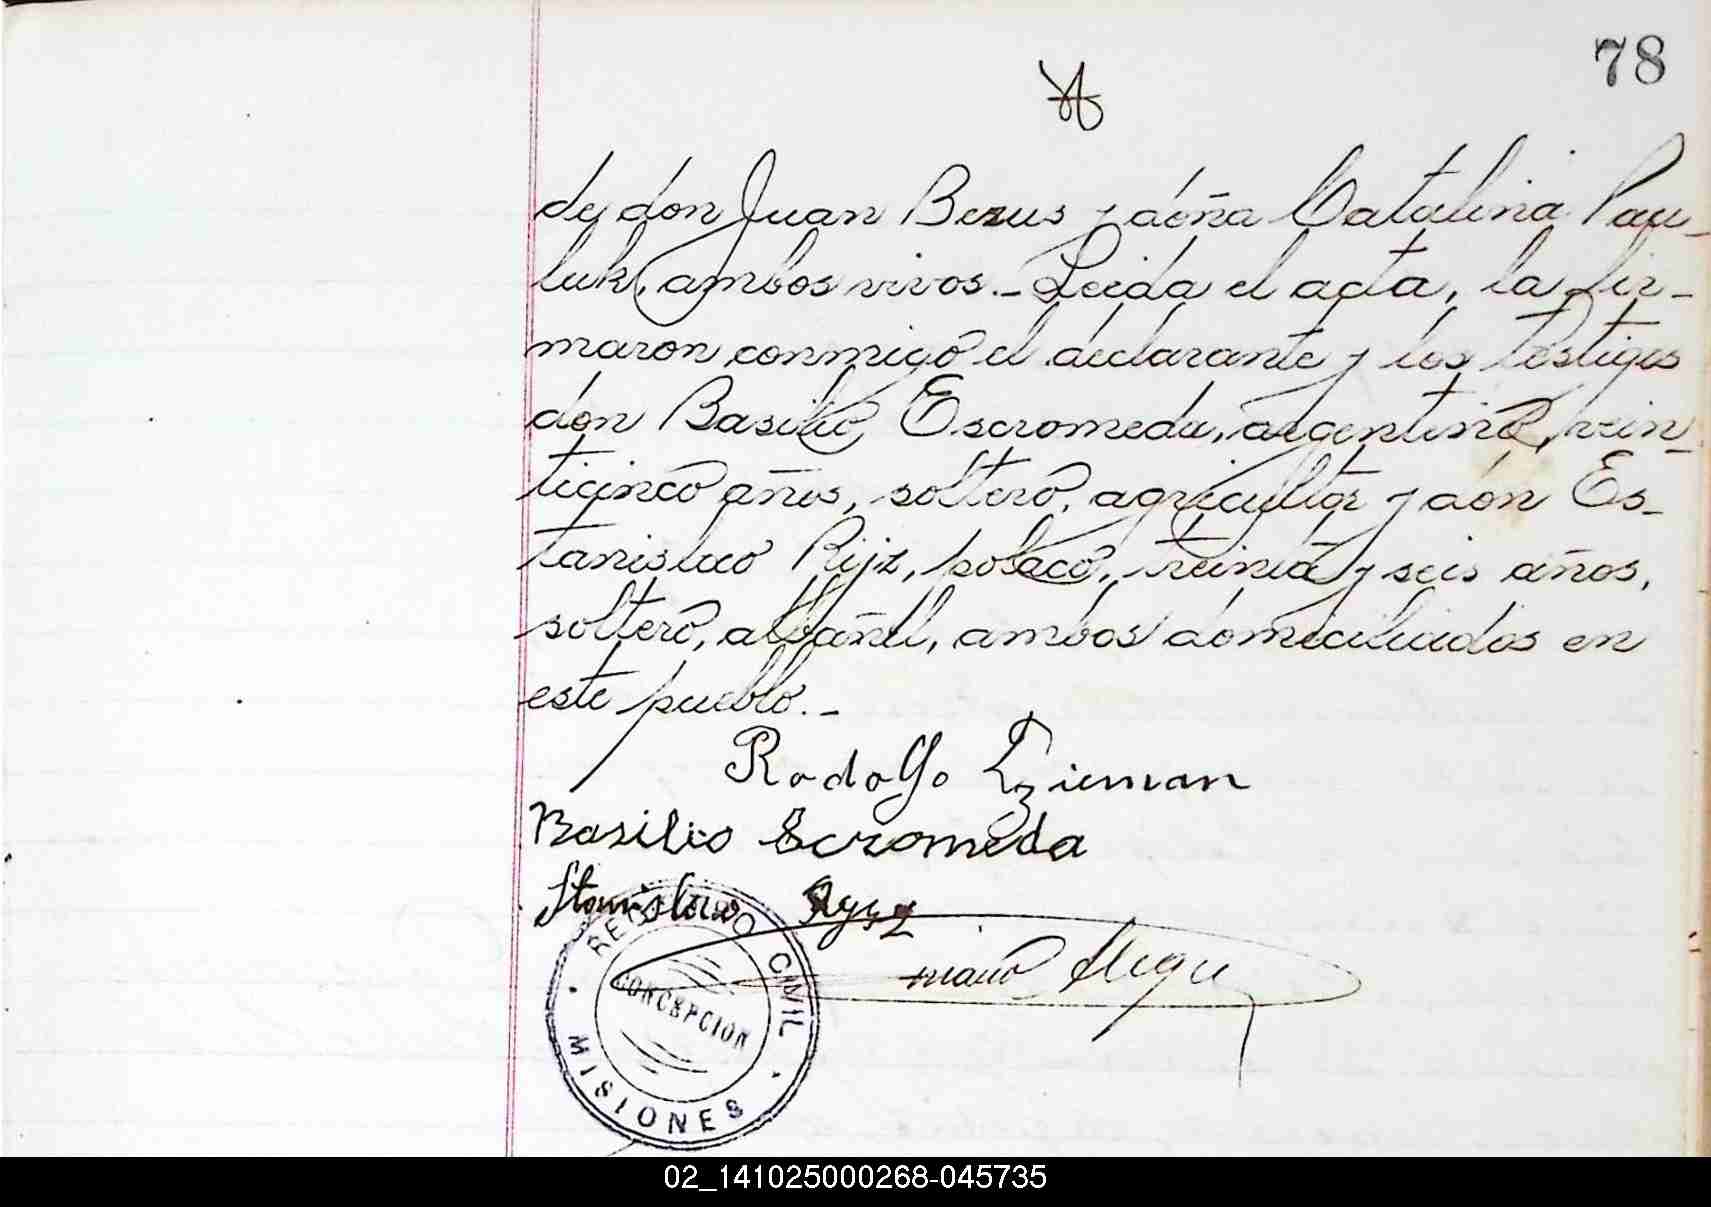 78
de don Juan Bezus y doña Catalina Pau-
luk, ambos vivos.- Leida el acta, la fir-
maron conmigo el declarante y los testigos
don Basilio Escromeda, argentino, vein-
ticinco años, soltero, agricultor y don Es-
tanislao Rijz, polaco, treinta y seis años,
soltero, albañil, ambos domiciliados en
este pueblo.-
Rodolfo
Basilio Scromeda
Stanislaw
REGISTRO CIVIL
CONCEPCION
MISIONES
02_141025000268-045735